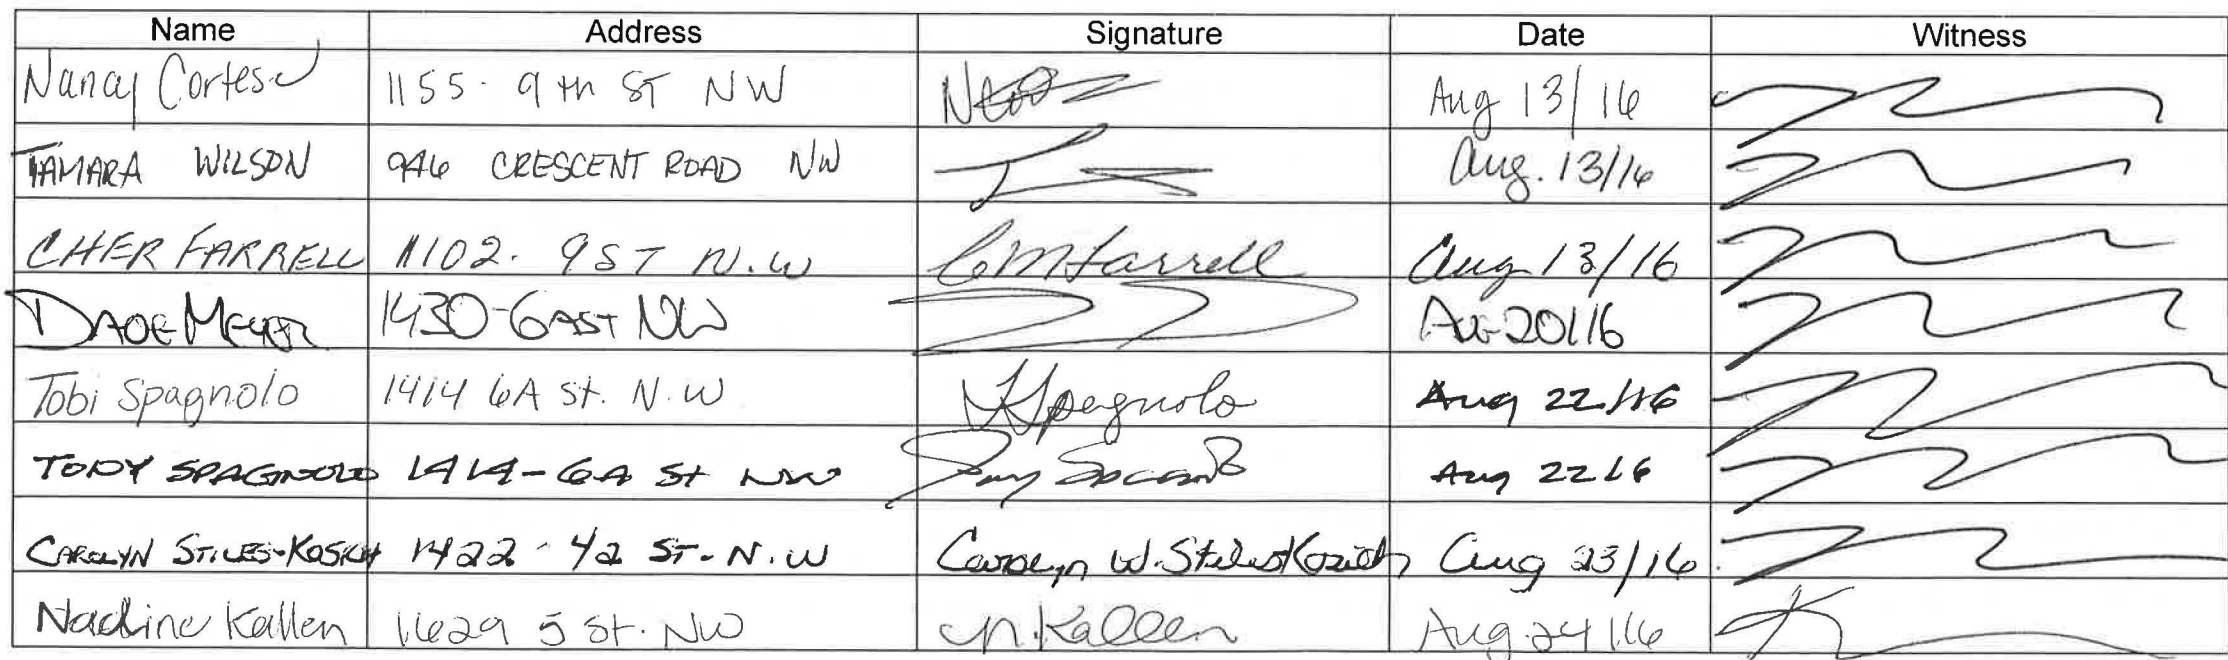 Name Address Signature Date Witness
Nancy Cortese 1155 - 9th ST NW Aug 13/16
TAMARA WILSON 946 CRESCENT ROAD NW Aug. 13/16
CHER FARRELL 1102 - 9 ST N.W CMFarrell Aug 13/16
DAVE MEYER 1430-6A ST NW AUG 20/16
Tobi Spagnolo 1414 6A St. N.W TSpagnolo Aug 22/16
TONY SPAGNOLO 1414-6A St NW Aug 22 16
CAROLYN STILES-KOSICH 1422 - 42 ST. N.W Carolyn W. Stiles Kosich Aug 23/16
Nadine Kallen 1629 5 St. NW N. Kallen Aug 24/16